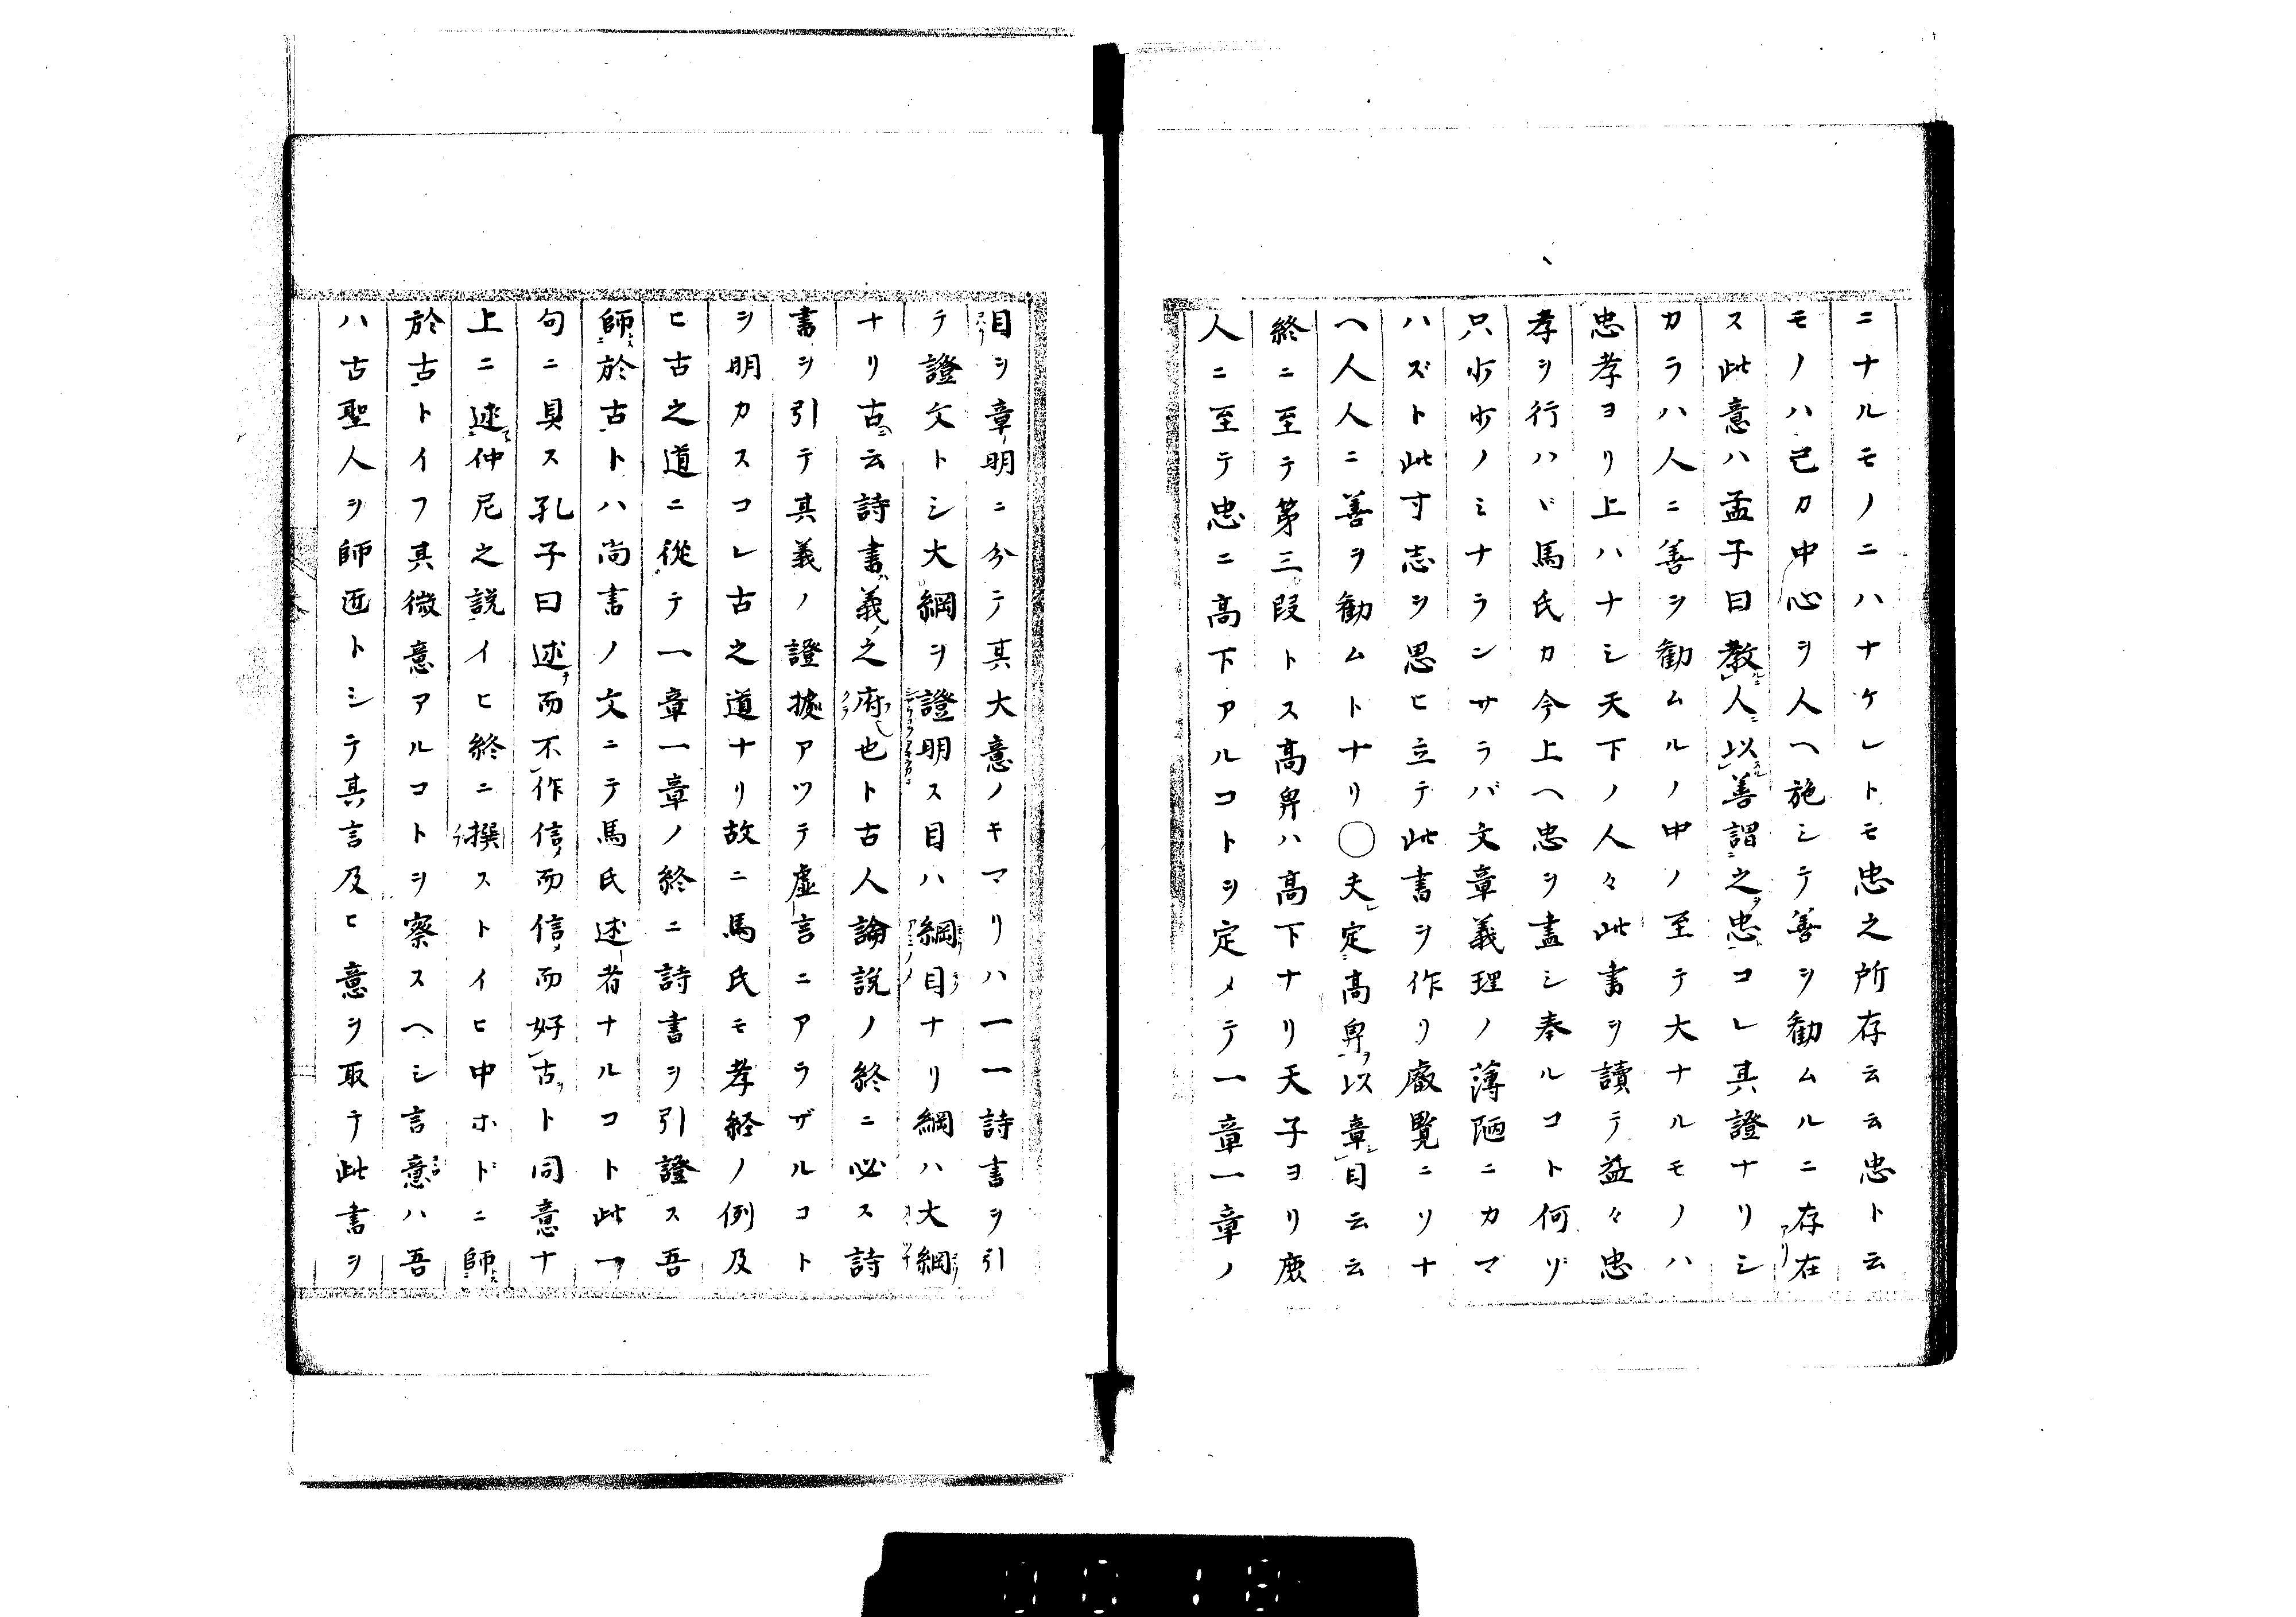 ニナルモノニハナケレトモ忠之所存云云忠ト云
モノハ己カ中心ヲ人ヘ施シテ善ヲ勸ムルニ存在
ス此意ハ孟子曰教人以善謂之忠コレ其證ナリシ
カラハ人ニ善ヲ勸ムルノ中ノ至テ大ナルモノハ
忠孝ヨリ上ハナシ天下ノ人々此書ヲ讀テ益々忠
孝ヲ行ハヾ馬氏カ今上ヘ忠ヲ盡シ奉ルコト何ゾ
只少少ノミナランサラバ文章義理ノ薄陋ニカマ
ハズト此寸志ヲ思ヒ立テ此書ヲ作リ叡覽ニソナ
ヘ人人ニ善ヲ勸ムトナリ○夫定高卑以章目云云
終ニ至テ第三段トス高卑ハ高下ナリ天子ヨリ庶
人ニ至テ忠ニ高下アルコトヲ定メテ一章一章ノ
目ヲ章明ニ分テ其大意ノキマリハ一一詩書ヲ引
テ證文トシ大綱ヲ證明ス目ハ綱目ナリ綱ハ大綱
ナリ古云詩書義之府也ト古人論説ノ終ニ必ス詩
書ヲ引テ其義ノ證據アツテ虚言ニアラザルコト
ヲ明カスコレ古之道ナリ故ニ馬氏モ孝経ノ例及
ヒ古之道ニ從テ一章一章ノ終ニ詩書ヲ引證ス吾
師於古トハ尚書ノ文ニテ馬氏述者ナルコト此一
句ニ具ス孔子曰述而不作信而信而好古ト同意ナ
上ニ述仲尼之説イヒ終ニ撰ストイヒ中ホドニ師
於古トイフ其微意アルコトヲ察スヘシ言意ハ吾
ハ古聖人ヲ師匠トシテ其言及ヒ意ヲ取テ此書ヲ